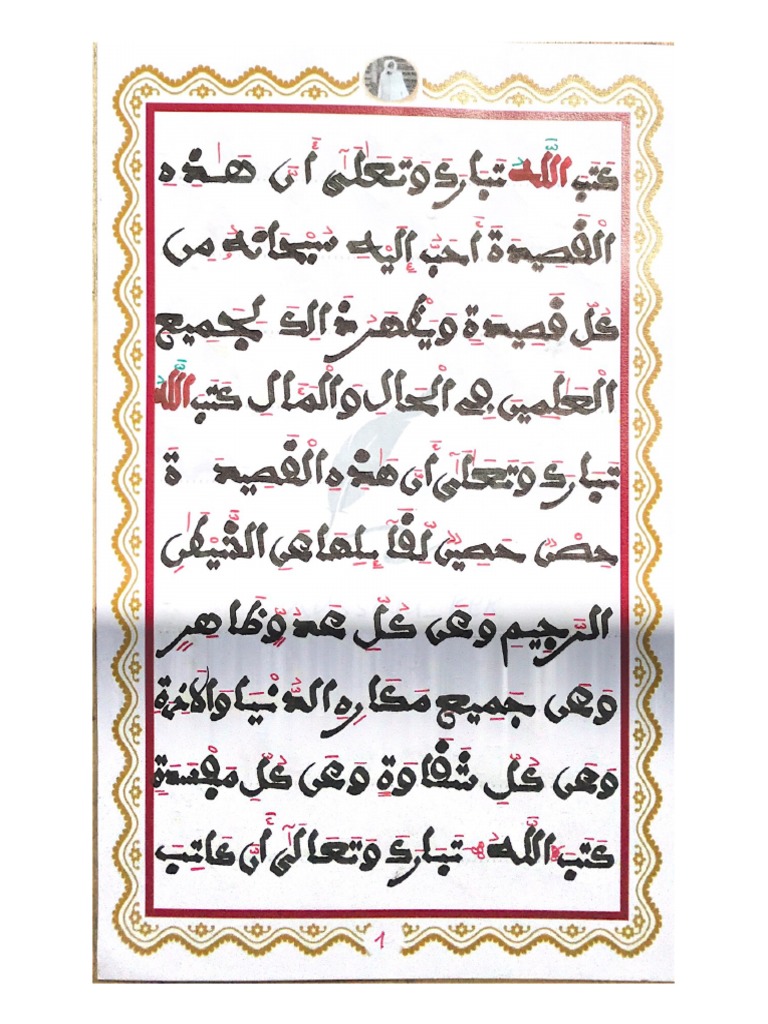 كَتَبَ اللَّهُ تَبَارَكَ وَتَعَلَىٰ أَنَّ هَٰذِهِ
الْقَصِيدَةَ أَحَبُّ إِلَيْهِ سُبْحَانَهُ مِن
كُلِّ قَصِيدَةٍ وَيُظْهِرُ ذَالِكَ لِجَمِيعِ
الْعَٰلَمِينَ فِي الْحَالِ وَالْمَئَالِ كَتَبَ اللَّهُ
تَبَارَكَ وَتَعَلَىٰ أَنَّ هَٰذِهِ الْقَصِيدَةَ
حِصْنٌ حَصِينٌ لِّقَآئِلِهَا عَنِ الشَّيْطَٰنِ
الرَّجِيمِ وَعَن كُلِّ عَدُوٍّ ظَاهِرٍ
وَعَن جَمِيعِ مَكَارِهِ الدُّنْيَا وَالَاخِرَةِ
وَعَن كُلِّ شَقَاوَةٍ وَعَن كُلِّ مَفْسَدَةٍ
كَتَبَ اللَّهُ تَبَارَكَ وَتَعَالَىٰ أَنَّ كَاتِبَ
1